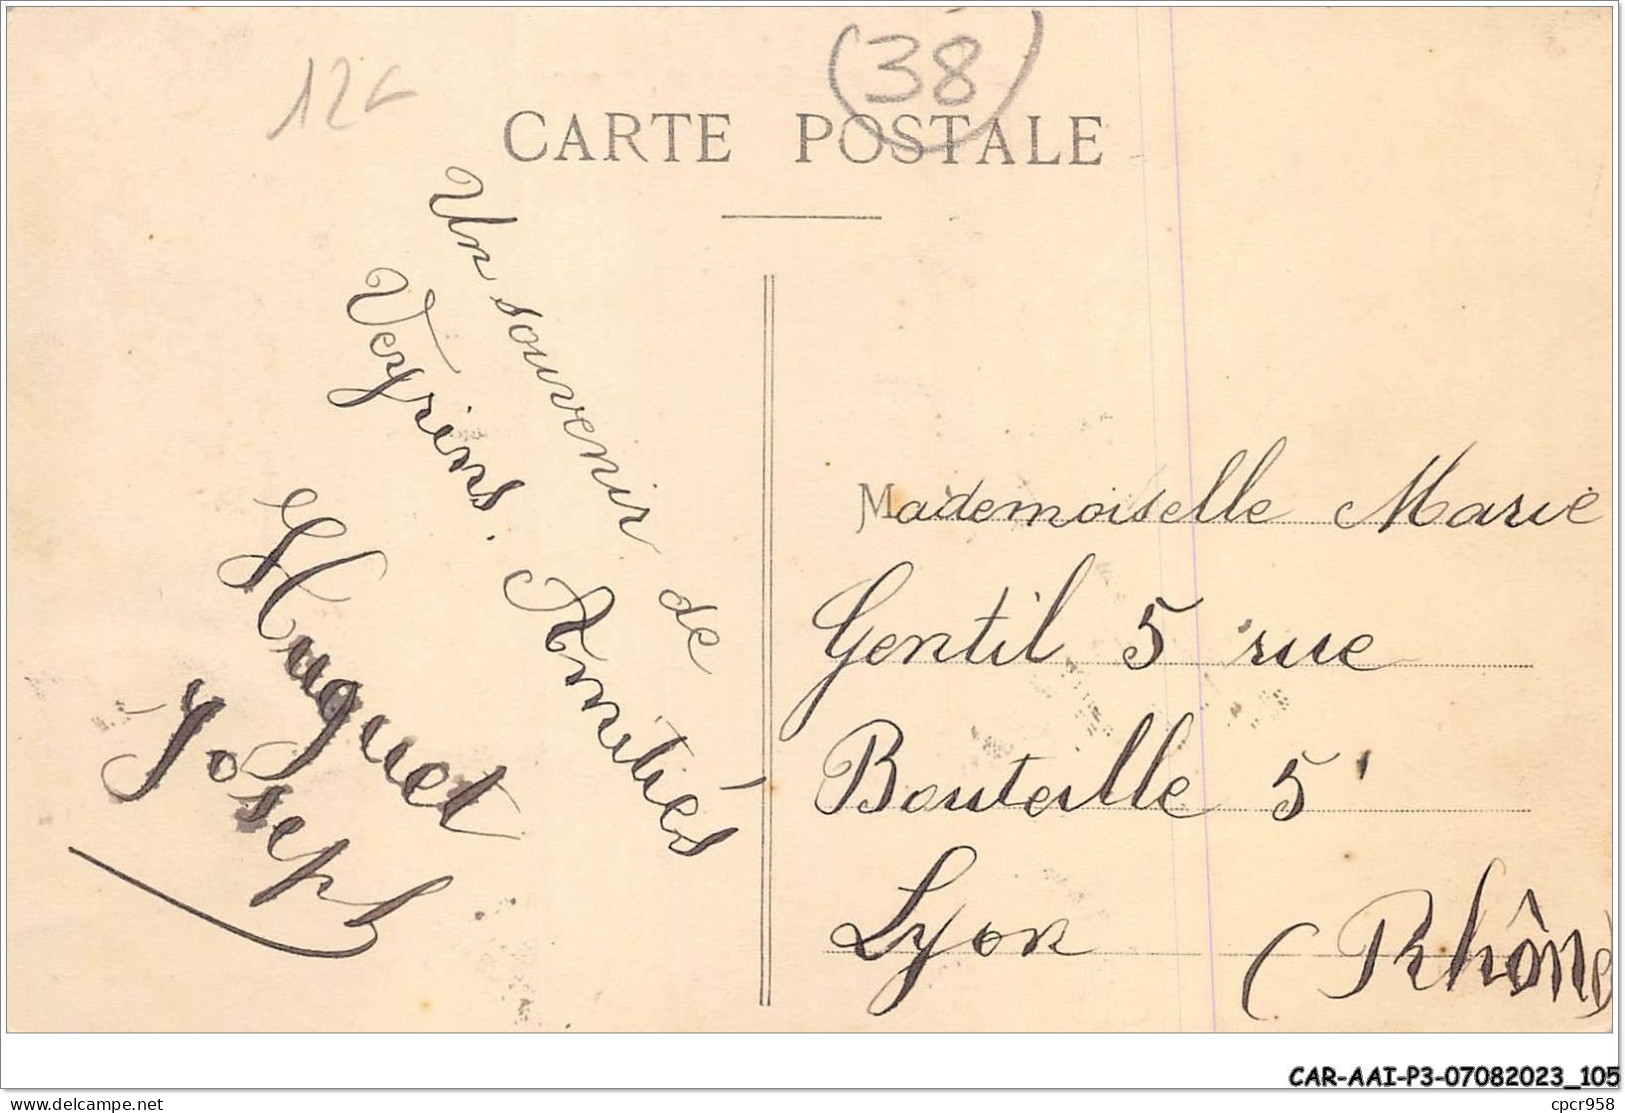 12€
(38)
CARTE POSTALE
Un souvenir de
Veyrins. Amitiés
Huguet
Joseph
Mademoiselle Marie
Gentil 5 rue
Bouteille 5'
Lyon (Rhône)
CAR-AAI-P3-07082023_105
delcampe.net
cpcr958